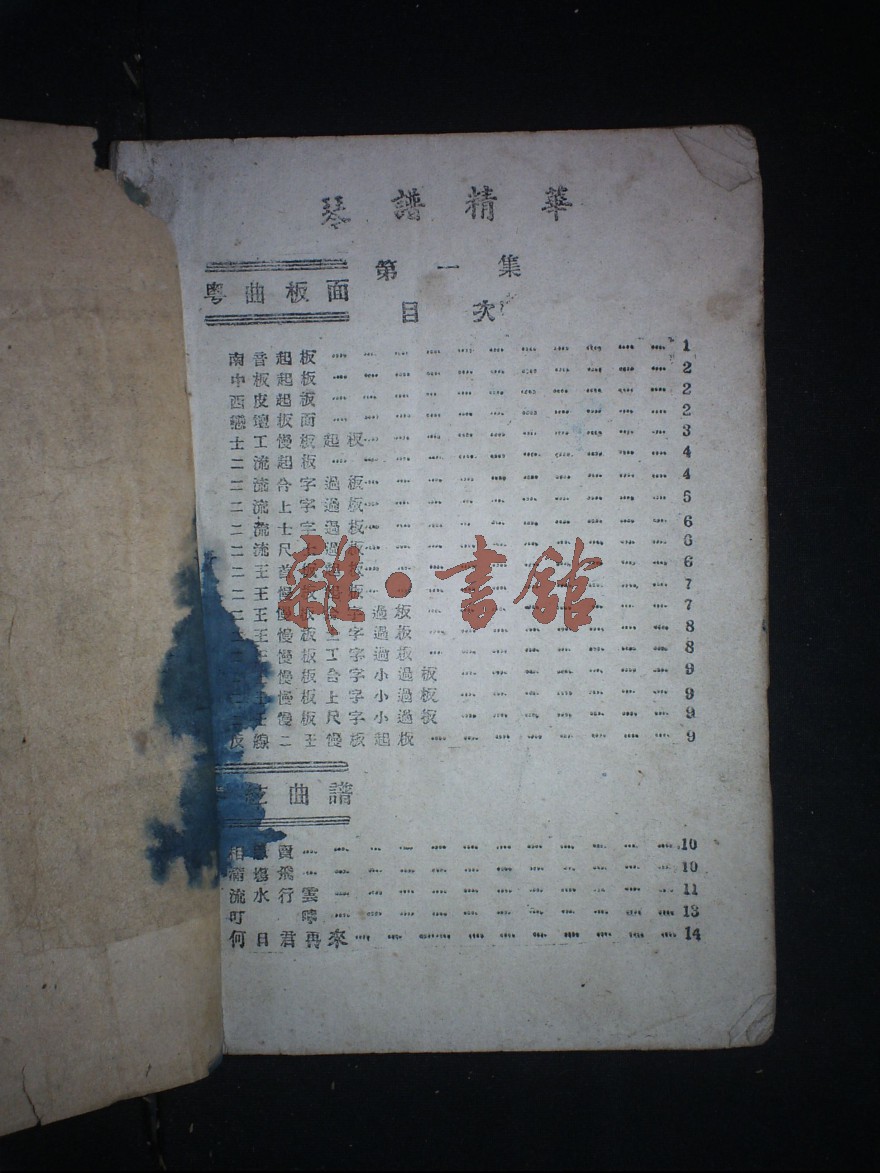 琴譜精華
第一集
粵曲板面
目次
南音起板 1
中板起板 2
西皮起板 2
戀壇板面 2
士工慢板起板 3
二流起板 4
二流合字過板 4
二流上字過板 5
二流士字過板 6
二流尺字過板 6
二王首板 6
二王慢板 7
二王慢板字過板 7
王慢板字過板 8
王慢板工字過板 8
慢板合字小過板 9
慢板上字小過板 9
王慢板尺字小過板 9
反線二王慢起板 9
雜·書館
弦曲譜
賣 10
飛 10
流水行雲 11
叮嚀 13
何日君再來 14